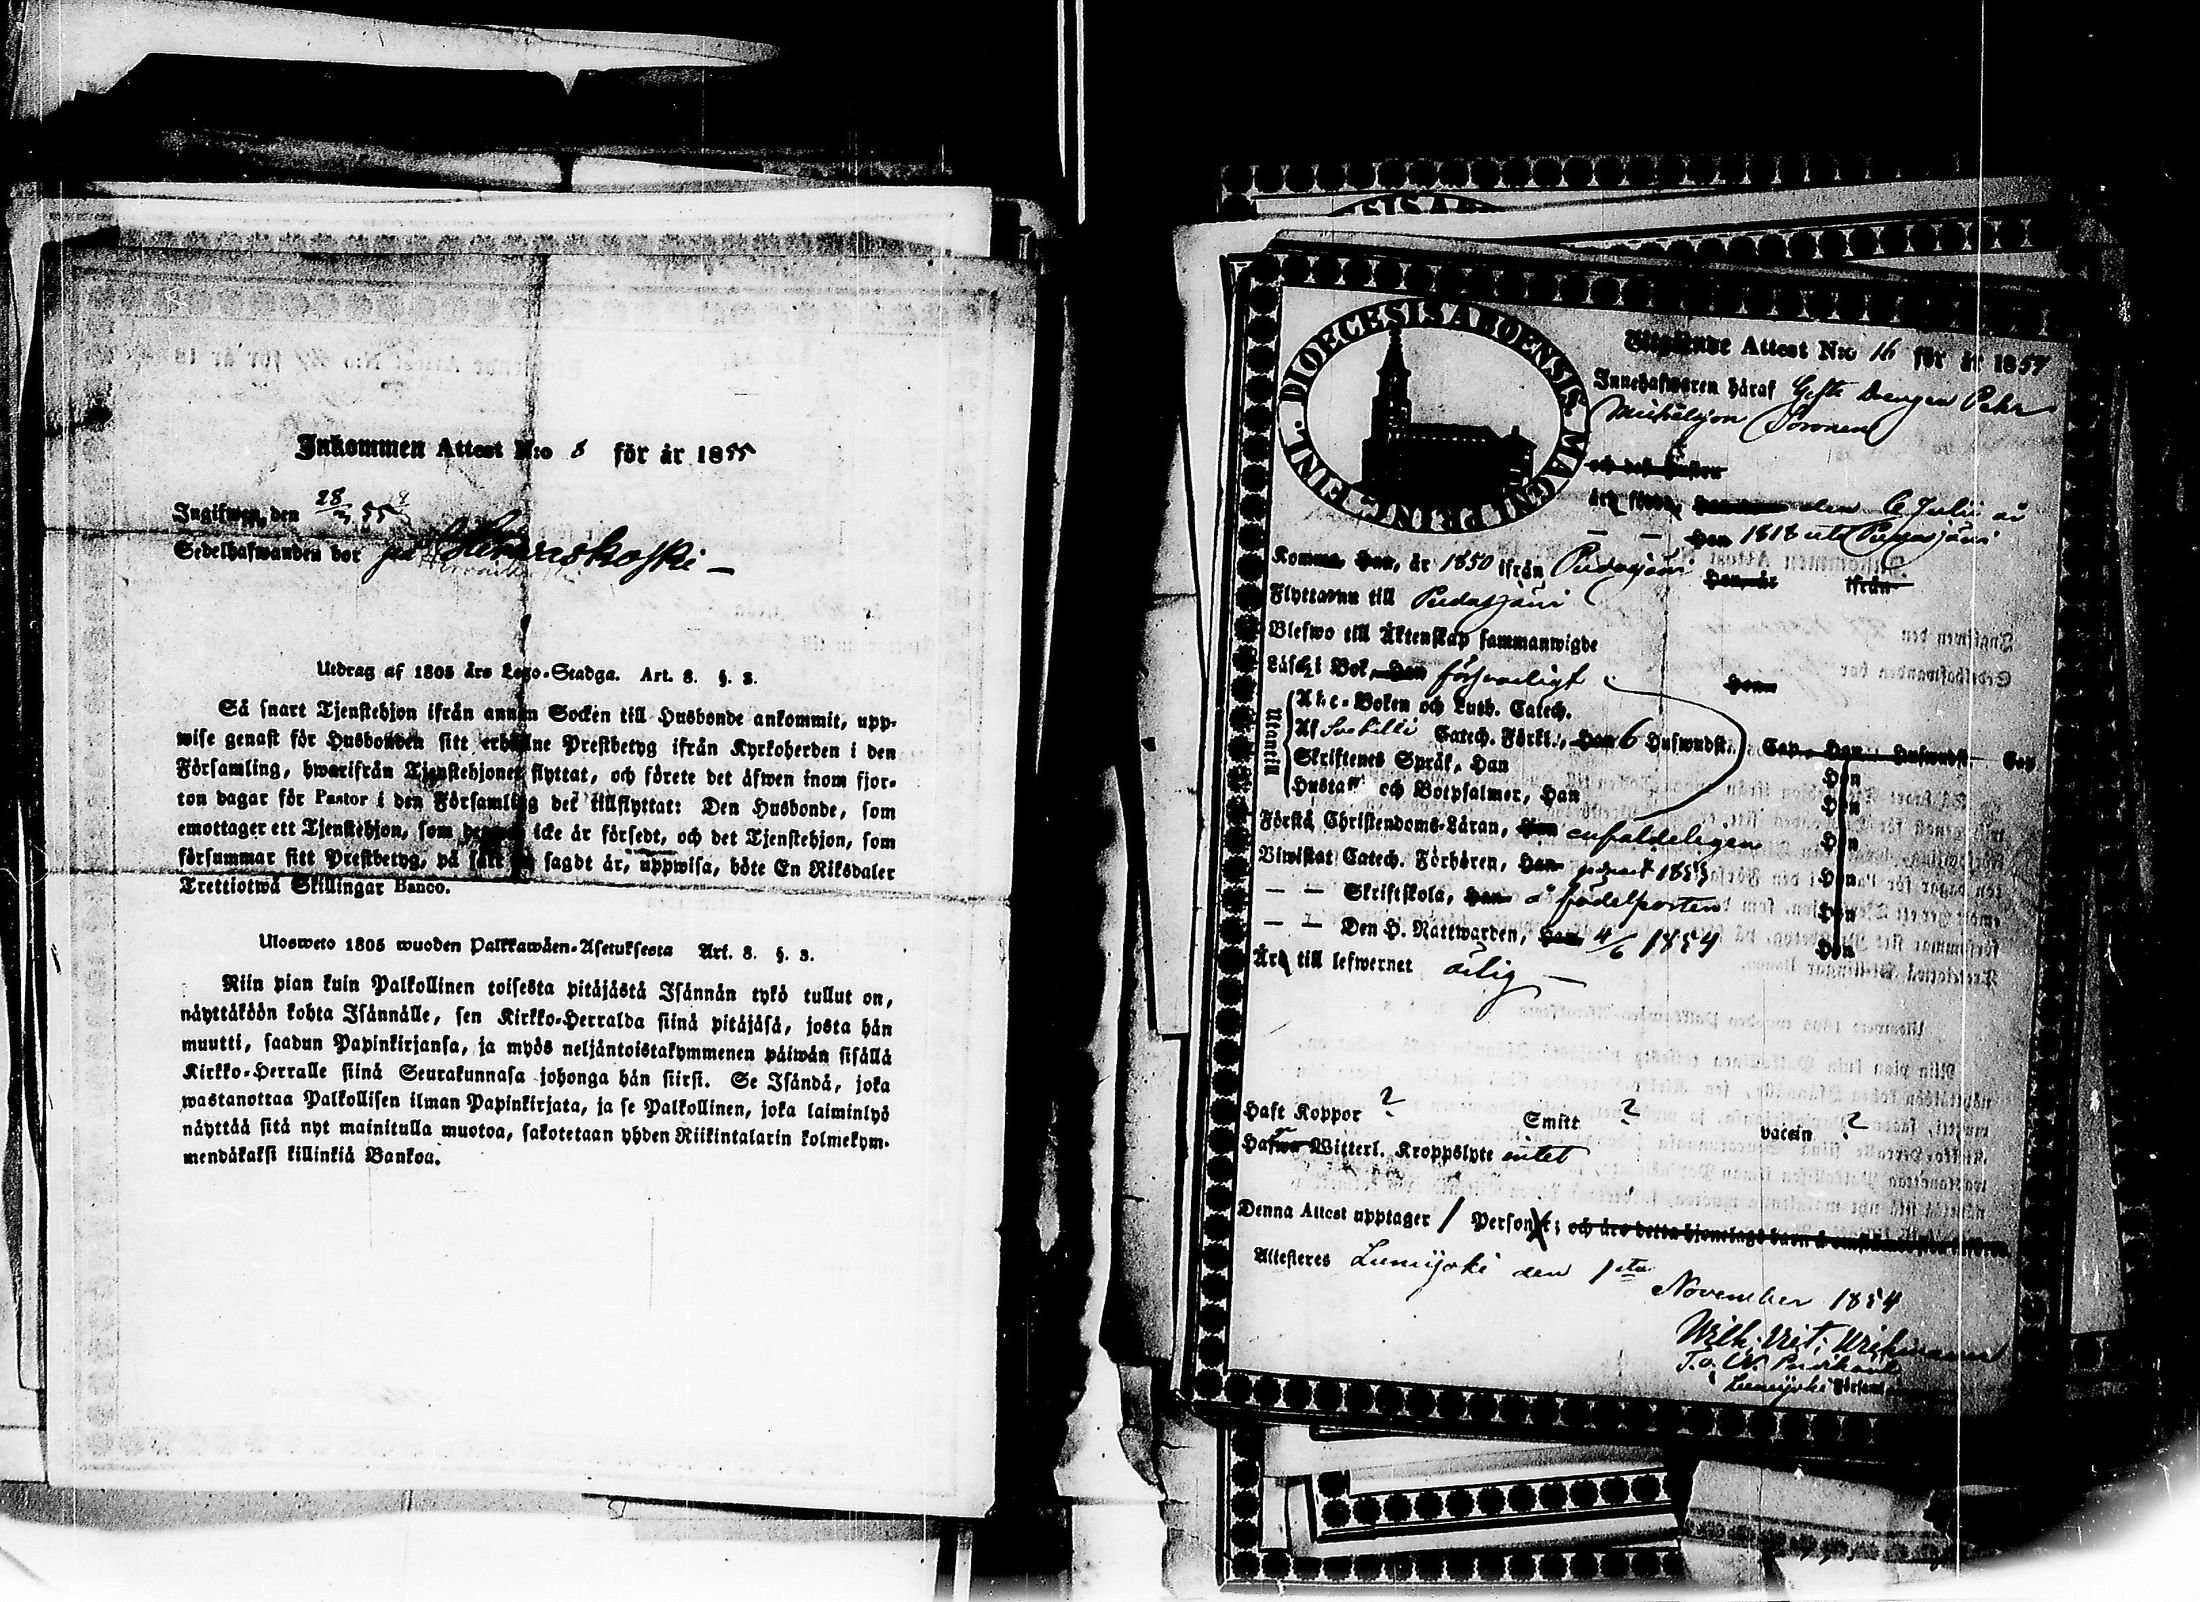 Inkommen Attest N:o 8 för år 1855
Ingifwen, den 28/3 55
Sedelhafwanden bor på
Utdrag af 1805 års Lego-Stadga. Art. 8. §. 3.
Så snart Tjenstehjon ifrån annan Socken till Husbonde ankommit, upp-
wise genast för Husbonden sitt erhållne Prestbetyg ifrån Kyrkoherden i den
Församling, hwarifrån Tjenstehjonet flyttat, och förete det äfwen inom fjor-
ton dagar för Pastor i den Församling det tillflyttat: Den Husbonde, som
emottager ett Tjenstehjon, som dermed icke är försedt, och det Tjenstehjon, som
försummar sitt Prestbetyg, på sätt sagdt är, uppwisa, böte En Riksdaler
Trettiotwå Skillingar Banco.
Ulosweto 1805 wuoden Palkkawäen-Asetuksesta Art. 8. §. 3.
Niin pian kuin Palkollinen toisesta pitäjästä Isännän tykö tullut on,
näyttäköön kohta Isännälle, sen Kirkko-Herralda siinä pitäjäsä, josta hän
muutti, saadun Papinkirjansa, ja myös neljäntoistakymmenen päiwän sisällä
Kirkko-Herralle siinä Seurakunnasa johonga hän siirsi. Se Isändä, joka
wastanottaa Palkollisen ilman Papinkirjata, ja se Palkollinen, joka laiminlyö
näyttää sitä nyt mainitulla muotoa, sakotetaan yhden Riikintalarin kolmekym-
mendäkaksi killinkiä Bankoa.
DIOECESIS ABOENSIS. MAGNI PRINC. FINL.
Utgående Attest N:o 16 för år 1854
Innehafwaren häraf Gifte Drengen Pehr
Michelsson Soronen
och dess Hustru
är född, den 6 Julii år
— — Hon 1818 uti Pudasjärvi
Komma, Han, år 1850 ifrån Pudasjärvi Hon, år ifrån
Flyttar nu till Pudasjärvi
Blefwo till Äktenskap sammanwigde
Läser i Bok, Han försvarligt Hon
Utantill
Abc-Boken och Luth. Catech.
Af Svebilii Catech. Förkl., Han 6 Hufwudst. Cap., Hon Hufwudst. Cap
Skriftenes Språk, Han Hon
Hustafl. och Botpsalmer, Han Hon
Förstå Christendoms-Läran, Han enfaldeligen Hon
Biwistat Catech. Förhören, Han 1853 Hon
— — Skriftskola, Han Hon
— — Den H. Nattwarden, Han 4/6 1854 Hon
Är till lefwernet ärlig —
Haft Koppor ? Smitt ? vaccin ?
Hafwa Witterl. Kroppslyte intet
Denna Attest upptager 1 Person;
Attesteres Lumijoki den 1sta
November 1854
Lumijoki Församl.